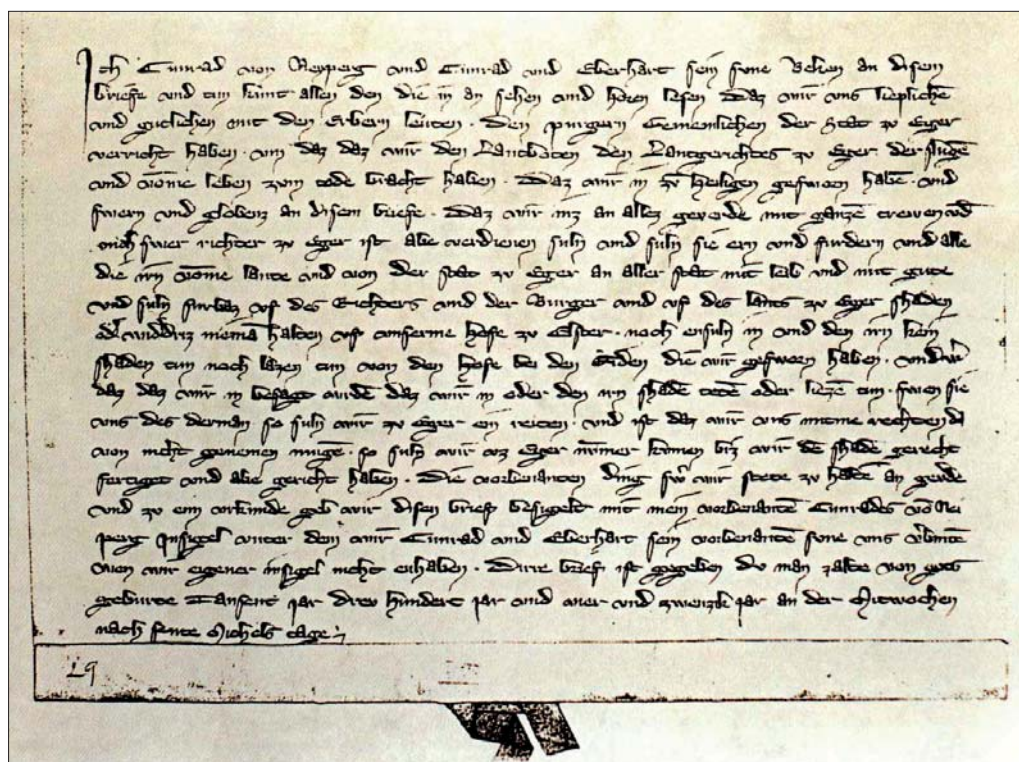 Ich Cunrad von Neyperg vnd Cunrad vnd Eberhart sein sune Veken an disem
briefe vnd tun kunt allen den die in an sehen vnd horen lesen Daz wir vns lieplichē
vnd gutlichen mit den Erbern leuten · Den purgern Gemeinlichen der Stat zv Eger
verricht haben · vm daz daz wir den Lantboten des Lantgerichtes zv Eger · der
vnd vome leben zum tode bracht haben · Daz wir in zv heiligen gesworn habē · vnd
swern vnd globenz an disem briefe · Daz wir inz an allez geverde mit ganzē trewen vnd
swer richter zv Eger ist abe verdienen suln vnd suln sie ern vnd furdern vnd alle
die irn vome lante vnd von der stat zv Eger an aller stat mit leib vnd mit gute
vnd suln furbaz vf des Richters vnd der Burger vnd vf des lants zv Eger shaden
niemā halten vf vnserme hofe zv Elster · noch ensuln in vnd den irn kein
shaden tun noch lazen tun von dem hofe bei den Eiden die wir gesworn haben · vnd
daz daz wir in besagt wurdē daz wir in oder den irn shadē tetē oder liezē tun · swen sie
vns des derman so suln wir zv Eger ein reiten · vnd ist daz wir vns mitme rechten da
von nicht genemen mugē · so suln wir vz Eger nimmer kumen biz wir dē shadē gerecht
fertiget vnd abe gericht haben · Die vorbenanten ding swer wir stete zv haltē an geuerde
vnd zv eim vrkunde geb wir disen brief besigelt mit mein vorbenantē Cunrades vō Nei
perg Insigel vnter dem wir Cunrad vnd Eberhart sein vorbenantē sune vns v̄bintē
wen wir eigener insigel nicht enhaben · Dirre brief ist gegeben do man zalte von gots
geburte Tausent jar drev hundert jar vnd vier vnd zweizk jar an der Mitwochen
nach sente Michels tage